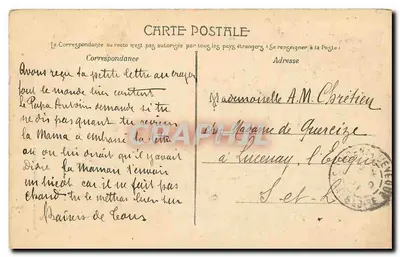 CARTE POSTALE
La Correspondance au recto n'est pas autorisée par tous les pays étrangers (Se renseigner à la Poste)
Correspondance
Adresse
Avons reçu ta petite lettre au crayon
tout le monde bien content
Le Papa Antoin demande si tu
ne dis pas quand tu reviens
la Mama a embrassé la
on lui dirait qu'il y avait
La Maman t'envoie
car il ne fait pas
chaud tu le mettras bien
Baisers de tous
Mademoiselle A.M. Chrétien
Madame de Quercize
à Lucenay l'Evêque
S-et-L
CPARAMA